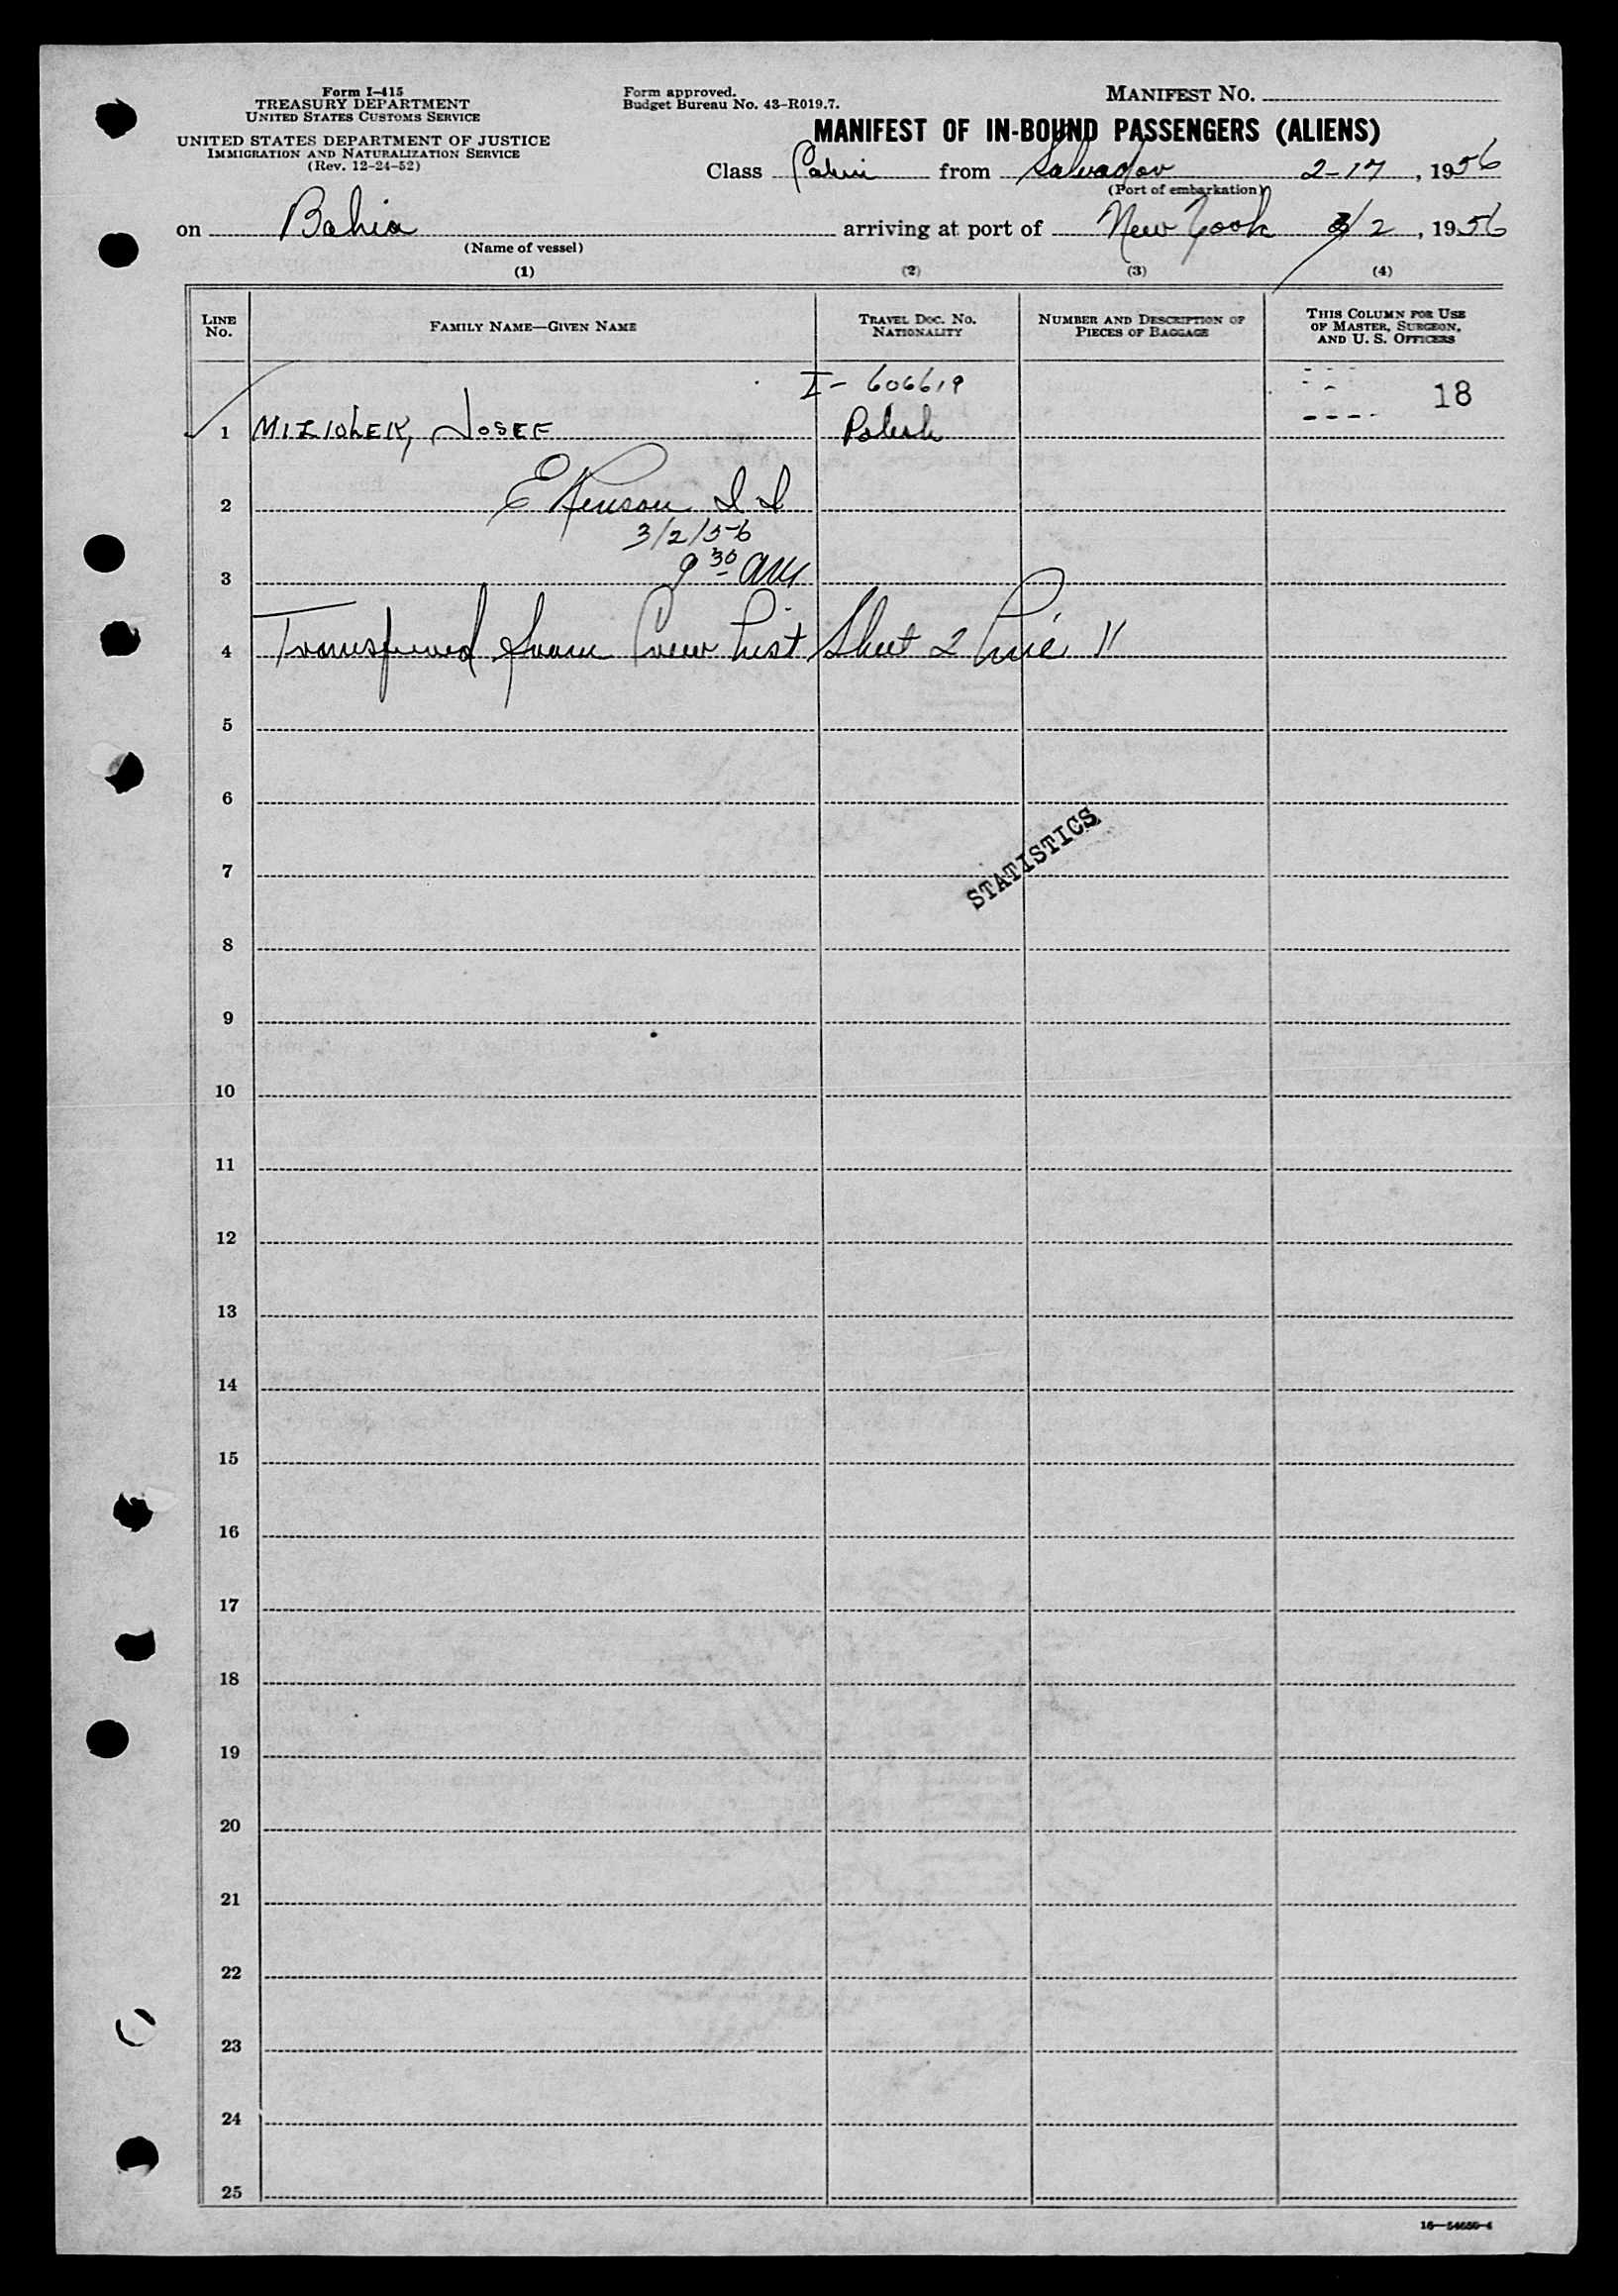 Form I-415
TREASURY DEPARTMENT
UNITED STATES CUSTOMS SERVICE
UNITED STATES DEPARTMENT OF JUSTICE
IMMIGRATION AND NATURALIZATION SERVICE
(Rev. 12-24-52)
Form approved.
Budget Bureau No. 43-R019.7.
MANIFEST NO.
MANIFEST OF IN-BOUND PASSENGERS (ALIENS)
Class Cabin from Salvador 2-17, 1956
(Port of embarkation)
on Bahia arriving at port of New York 3/2, 1956
(Name of vessel)
(1) (2) (3) (4)
LINE NO. FAMILY NAME—GIVEN NAME TRAVEL DOC. NO. NATIONALITY NUMBER AND DESCRIPTION OF PIECES OF BAGGAGE THIS COLUMN FOR USE OF MASTER, SURGEON, AND U. S. OFFICERS
I-606619 18
1 MIZIOLEK, JOSEF Polish
2 E
3/2/56
3 9 30 AM
4 Transferred from Crew List Sheet 2 Line 11
5
6
STATISTICS
7
8
9
10
11
12
13
14
15
16
17
18
19
20
21
22
23
24
25